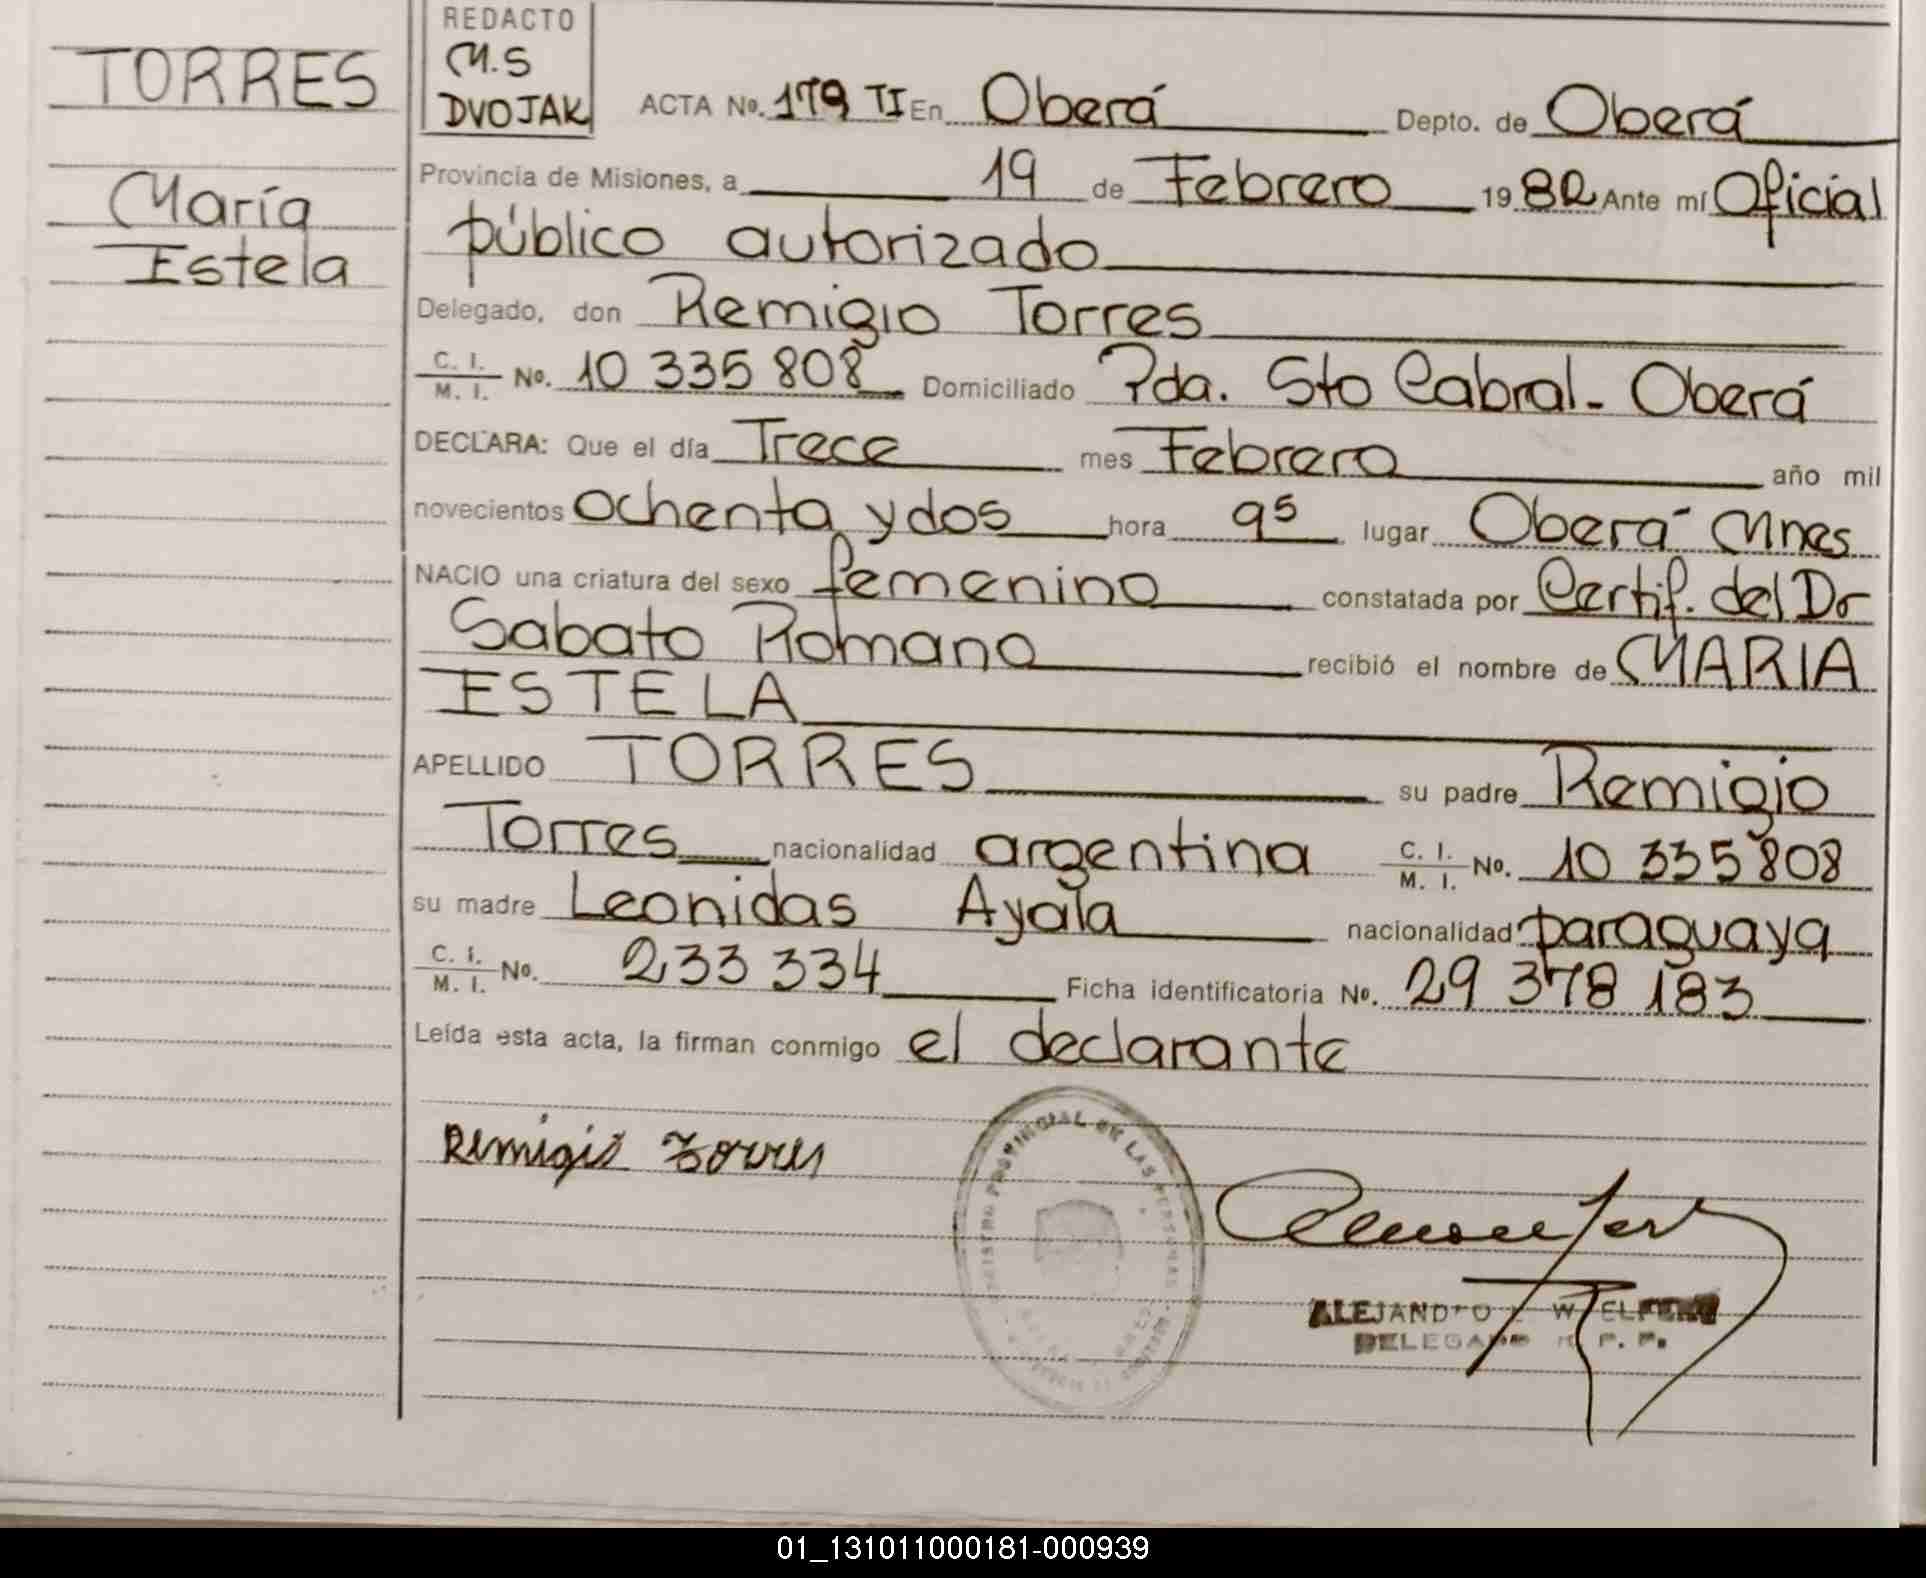 TORRES
María
Estela
REDACTO
M.S
DVOJAK
ACTA No. 179 TI En Oberá Depto. de Oberá
Provincia de Misiones, a 19 de Febrero 1982 Ante mí Oficial
público autorizado
Delegado, don Remigio Torres
C. I. / M. I. No. 10 335 808 Domiciliado Pda. Sto Cabral - Oberá
DECLARA: Que el día Trece mes Febrero año mil
novecientos ochenta y dos hora 9 5 lugar Oberá - Mnes
NACIO una criatura del sexo femenino constatada por Certif. del Dr
Sabato Romano recibió el nombre de MARIA
ESTELA
APELLIDO TORRES su padre Remigio
Torres nacionalidad argentina C. I. / M. I. No. 10 335 808
su madre Leonidas Ayala nacionalidad paraguaya
C. I. / M. I. No. 233 334 Ficha identificatoria No. 29 378 183
Leída esta acta, la firman conmigo el declarante
Remigio Torres
PROVINCIAL DE LAS PERSONAS
ALEJANDRO
DELEGADO R. P. P.
01_131011000181-000939